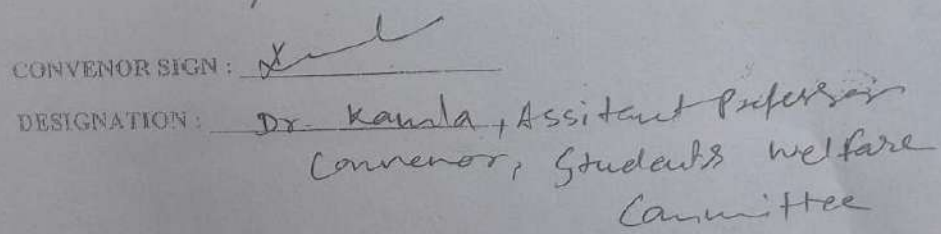 CONVENOR SIGN :
DESIGNATION : Dr. Kamla, Assitant Professor
Convenor, Students welfare
Committee